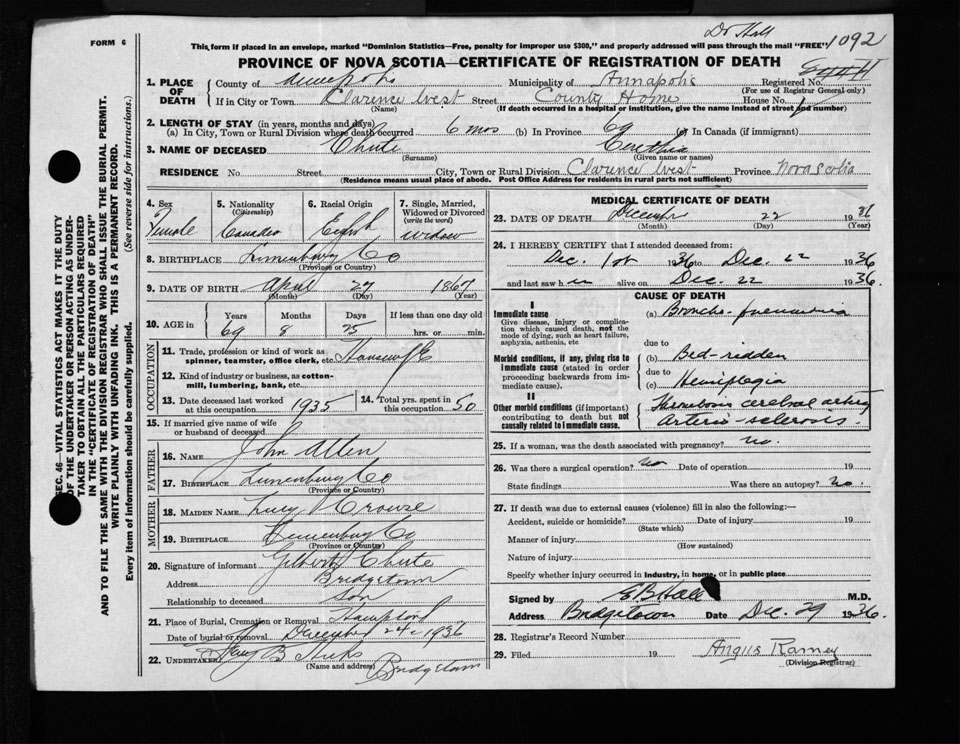 Dr Hall
1092
FORM 6
This form if placed in an envelope, marked "Dominion Statistics—Free, penalty for improper use $300," and properly addressed will pass through the mail "FREE"
PROVINCE OF NOVA SCOTIA—CERTIFICATE OF REGISTRATION OF DEATH
1. PLACE OF DEATH
County of Annapolis Municipality of Annapolis Registered No.
(For use of Registrar General only)
If in City or Town Clarence West Street County Home House No.
(Name) (If death occurred in a hospital or institution, give the name instead of street and number)
2. LENGTH OF STAY (in years, months and days)
(a) In City, Town or Rural Division where death occurred 6 mos (b) In Province 69 (c) In Canada (if immigrant)
3. NAME OF DECEASED Chute
(Surname) (Given name or names)
RESIDENCE No. Street City, Town or Rural Division Clarence West Province Nova Scotia
(Residence means usual place of abode. Post Office Address for residents in rural parts not sufficient)
4. Sex Female
5. Nationality (Citizenship)
6. Racial Origin English
7. Single, Married, Widowed or Divorced (write the word) widow
8. BIRTHPLACE Lunenburg Co
(Province or Country)
9. DATE OF BIRTH April 27 1867
(Month) (Day) (Year)
10. AGE in Years Months Days If less than one day old
69 8 25 hrs. or min.
OCCUPATION
11. Trade, profession or kind of work as spinner, teamster, office clerk, etc. Housewife
12. Kind of industry or business, as cotton-mill, lumbering, bank, etc.
13. Date deceased last worked at this occupation 1935
14. Total yrs. spent in this occupation 50
15. If married give name of wife or husband of deceased
FATHER
16. NAME John Allen
17. BIRTHPLACE Lunenburg Co
(Province or Country)
MOTHER
18. MAIDEN NAME Lucy Crouse
19. BIRTHPLACE Lunenburg Co
(Province or Country)
20. Signature of informant Gilbert Chute
Address Bridgetown
Relationship to deceased Son
21. Place of Burial, Cremation or Removal Hampton
Date of burial or removal December 24 1936
22. UNDERTAKER B Hicks
(Name and address) Bridgetown
MEDICAL CERTIFICATE OF DEATH
23. DATE OF DEATH December 22 19
(Month) (Day) (Year)
24. I HEREBY CERTIFY that I attended deceased from:
Dec. 1st 1936 to Dec. 22 1936
and last saw h er alive on Dec. 22 1936
CAUSE OF DEATH
I
Immediate cause
Give disease, injury or complication which caused death, not the mode of dying, such as heart failure, asphyxia, asthenia, etc
(a) Broncho-pneumonia
due to
Morbid conditions, if any, giving rise to immediate cause (stated in order proceeding backwards from immediate cause).
(b) Bed-ridden
due to
(c) Hemiplegia
II
Other morbid conditions (if important) contributing to death but not causally related to immediate cause.
Thrombosis cerebral artery
arterio-sclerosis.
25. If a woman, was the death associated with pregnancy? no.
26. Was there a surgical operation? no Date of operation 19
State findings Was there an autopsy? no.
27. If death was due to external causes (violence) fill in also the following:—
Accident, suicide or homicide? Date of injury 19
(State which)
Manner of injury
(How sustained)
Nature of injury
Specify whether injury occurred in industry, in home, or in public place
Signed by E B Hall M.D.
Address Bridgetown Date Dec. 29 1936.
28. Registrar's Record Number
29. Filed 19 Angus Ramey
(Division Registrar)
SEC. 46—VITAL STATISTICS ACT MAKES IT THE DUTY
OF THE UNDERTAKER OR PERSON ACTING AS UNDER-
TAKER TO OBTAIN ALL THE PARTICULARS REQUIRED
IN THE "CERTIFICATE OF REGISTRATION OF DEATH"
AND TO FILE THE SAME WITH THE DIVISION REGISTRAR WHO SHALL ISSUE THE BURIAL PERMIT.
WRITE PLAINLY WITH UNFADING INK. THIS IS A PERMANENT RECORD.
Every item of information should be carefully supplied. (See reverse side for instructions.)